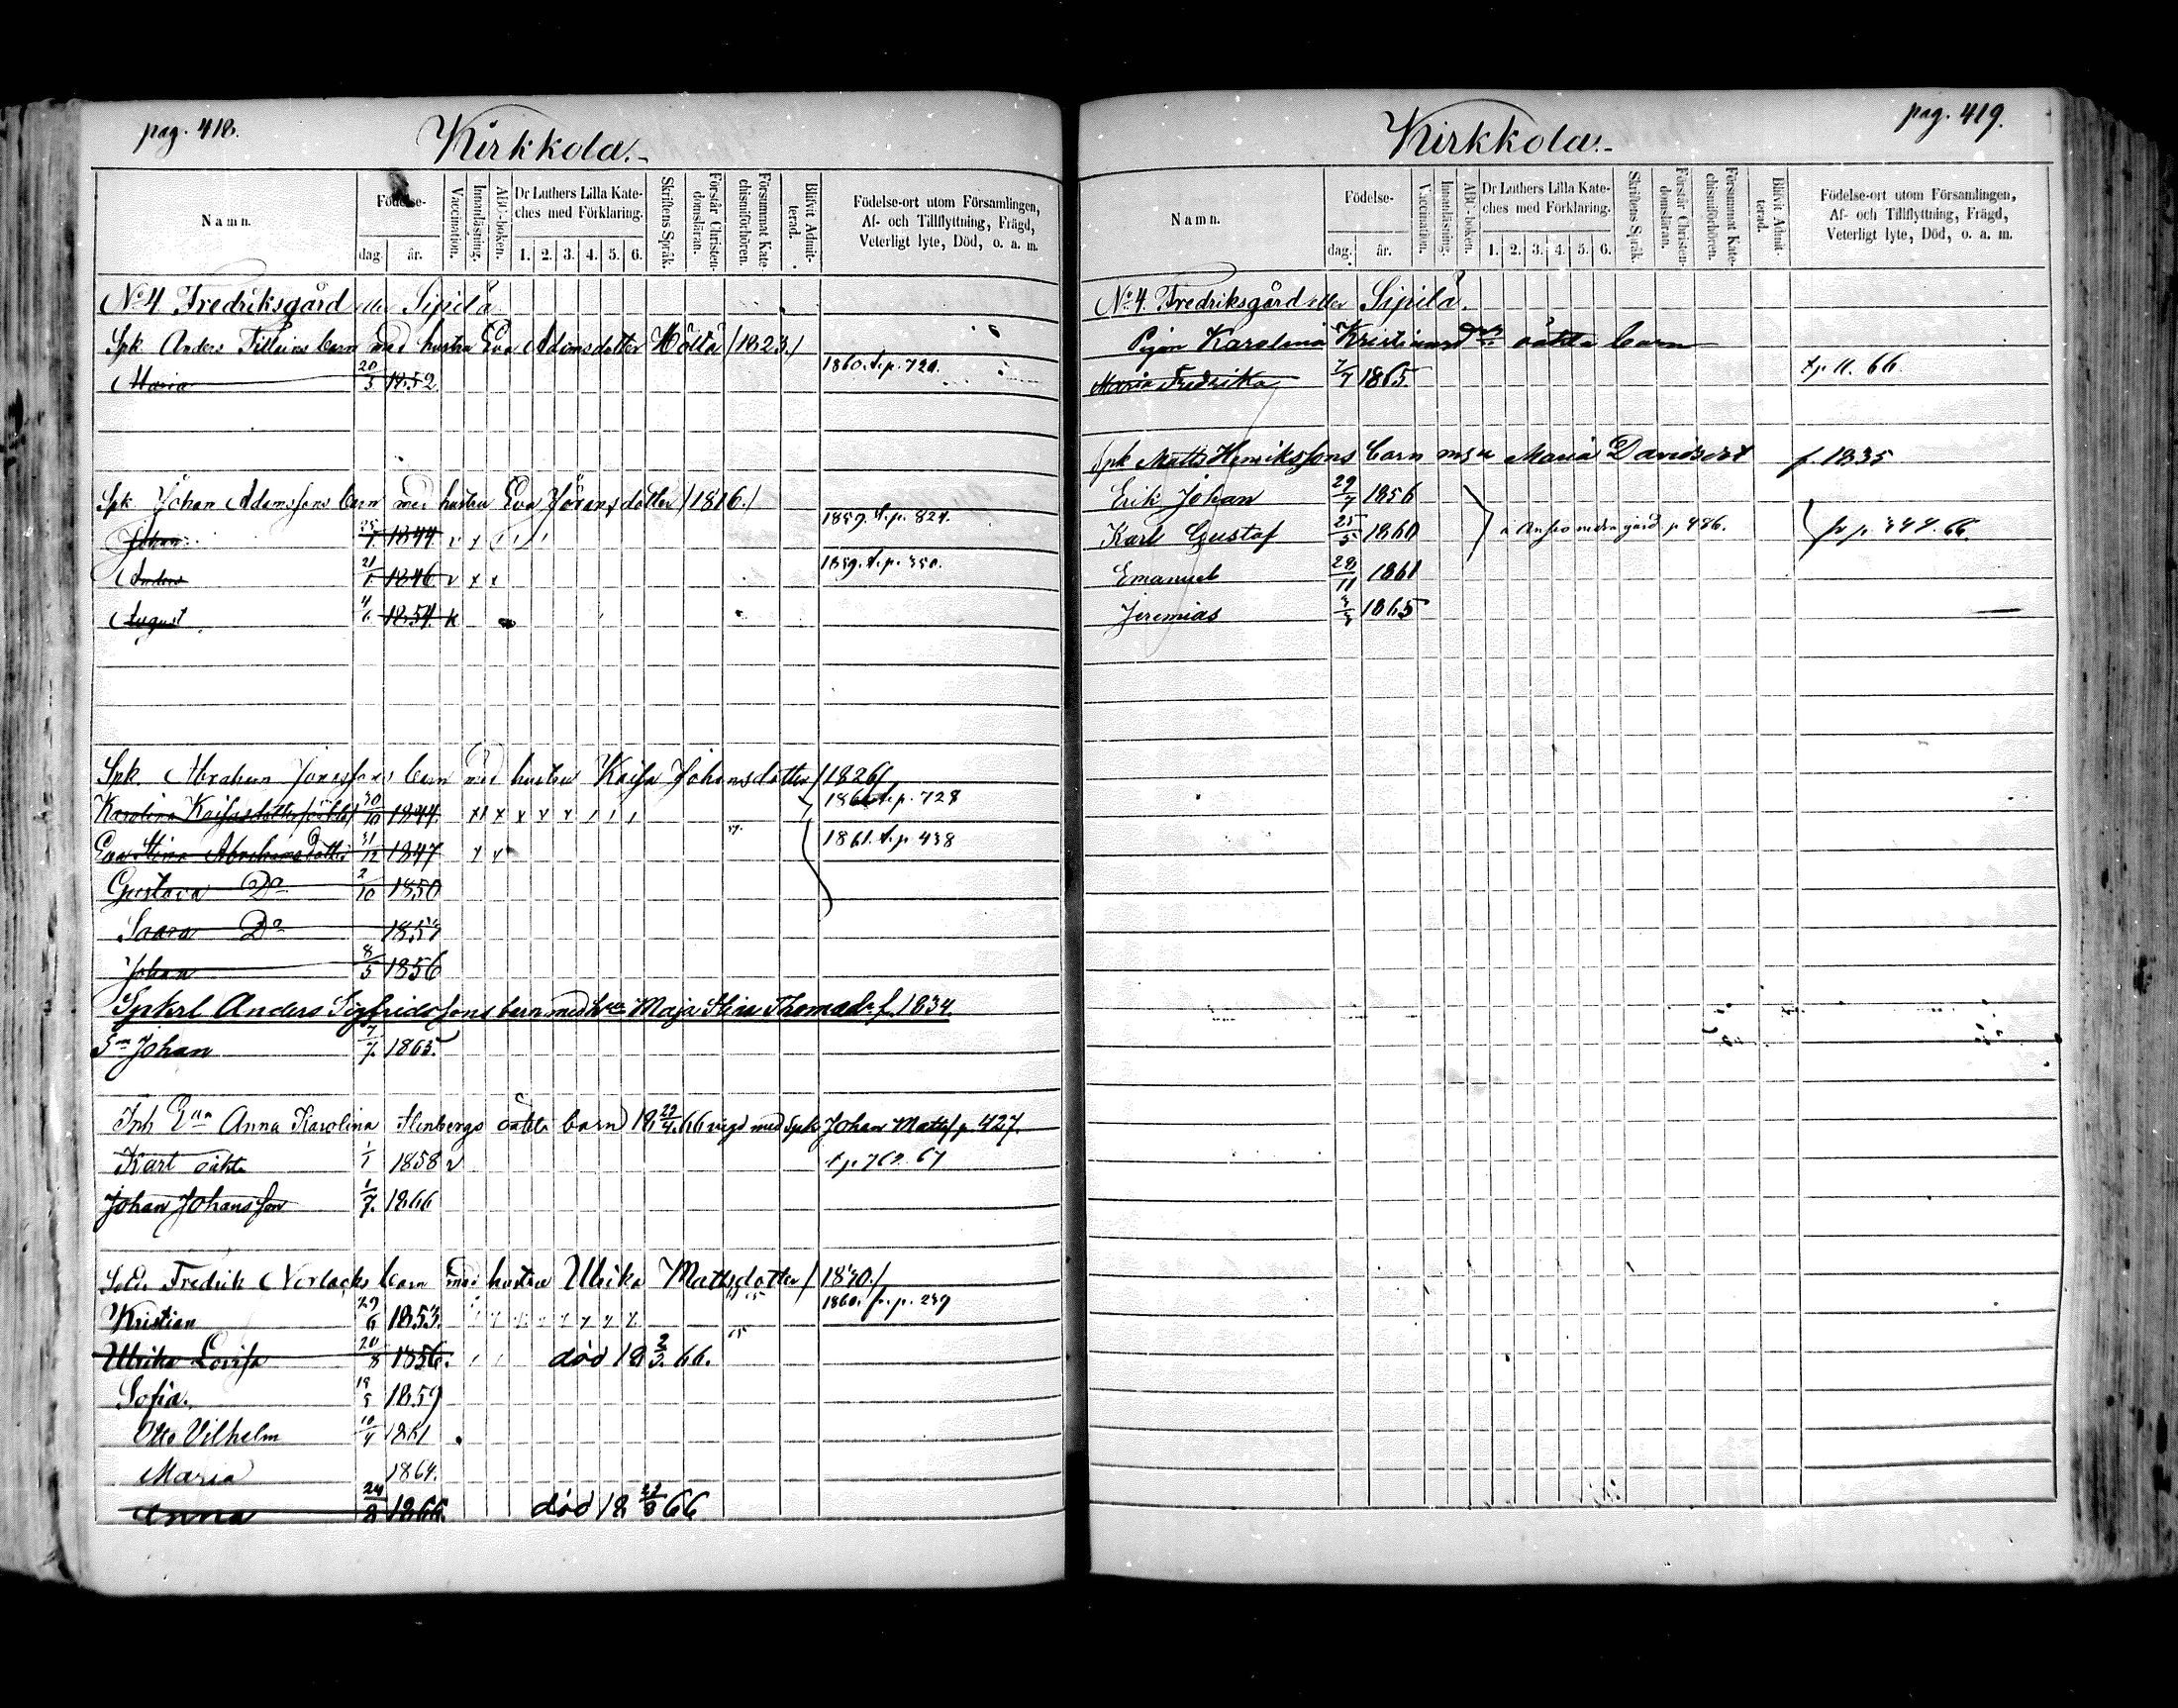 pag. 418.
Kirkkola.
Namn.
Födelse-
dag.
år.
Vaccination.
Innanläsning.
ABC-boken.
Dr Luthers Lilla Kate-
ches med Förklaring.
1. 2. 3. 4. 5. 6.
Skriftens Språk.
Förstår Christen-
domsläran.
Försummat Kate-
chismiförhören.
Blifvit Admit-
terad.
Födelse-ort utom Församlingen,
Af- och Tillflyttning, Frägd,
Veterligt lyte, Död, o. a. m.
No 4 Fredriksgård eller Sipilä
Spk Anders barn med hustru Eva Adamsdotter Höltä /1823./
Maria 20/3 1852 1860. t. p. 720.
Spk Johan Adamssons barn med hustru Eva Jöransdotter /1816./
Johan 1844 1859. t. p. 824.
Anders 21/1 1846 1859. t. p. 350.
August 4/6 1854
Spk. Abraham barn med hustru Kaisa Johansdotter /1826/
Karolina Kaisasdotter 30/10 1844 t. p. 728
Eva Stina Abrahamsdotter 31/12 1847 1861. t. p. 438
Gustava Do 2/10 1850
Saara Do
Johan 8/5 1856
Spkrl Anders Sigfridssons barn med Maja Stina Thomasdr f. 1834.
Sn Johan 7/7 1865.
Inh Anna Karolina Stenbergs oäkta barn 18 23/4 66 vigd med Spk Johan p. 427.
Karl oäkta 1/1 1858 v
Johan Johansson 1/7 1866
Fredrik Norlacks barn med hustru Ulrika Mattsdotter
Kristian 29/6 1853. 1860. fr. p. 239
Ulrika Lovisa 20/8 1856. död 18 2/3 66.
Sofia. 1859
Otto Vilhelm 1861
Maria 1864.
Anna 24/8 1866. död 18 66
pag. 419.
Kirkkola.
Namn.
Födelse-
dag.
år.
Vaccination.
Innanläsning.
ABC-boken.
Dr Luthers Lilla Kate-
ches med Förklaring.
1. 2. 3. 4. 5. 6.
Skriftens Språk.
Förstår Christen-
domsläran.
Försummat Kate-
chismiförhören.
Blifvit Admit-
terad.
Födelse-ort utom Församlingen,
Af- och Tillflyttning, Frägd,
Veterligt lyte, Död, o. a. m.
No 4. Fredriksgård eller Sipilä.
Pigan Karolina oäkta barn
Maria Fredrika 1865
Spk Matts Henrikssons barn Maria f. 1835
Erik Johan 29/7 1856
Karl Gustaf 25/5 1860 p 486.
Emanuel 28/11 1861
Jeremias 1865